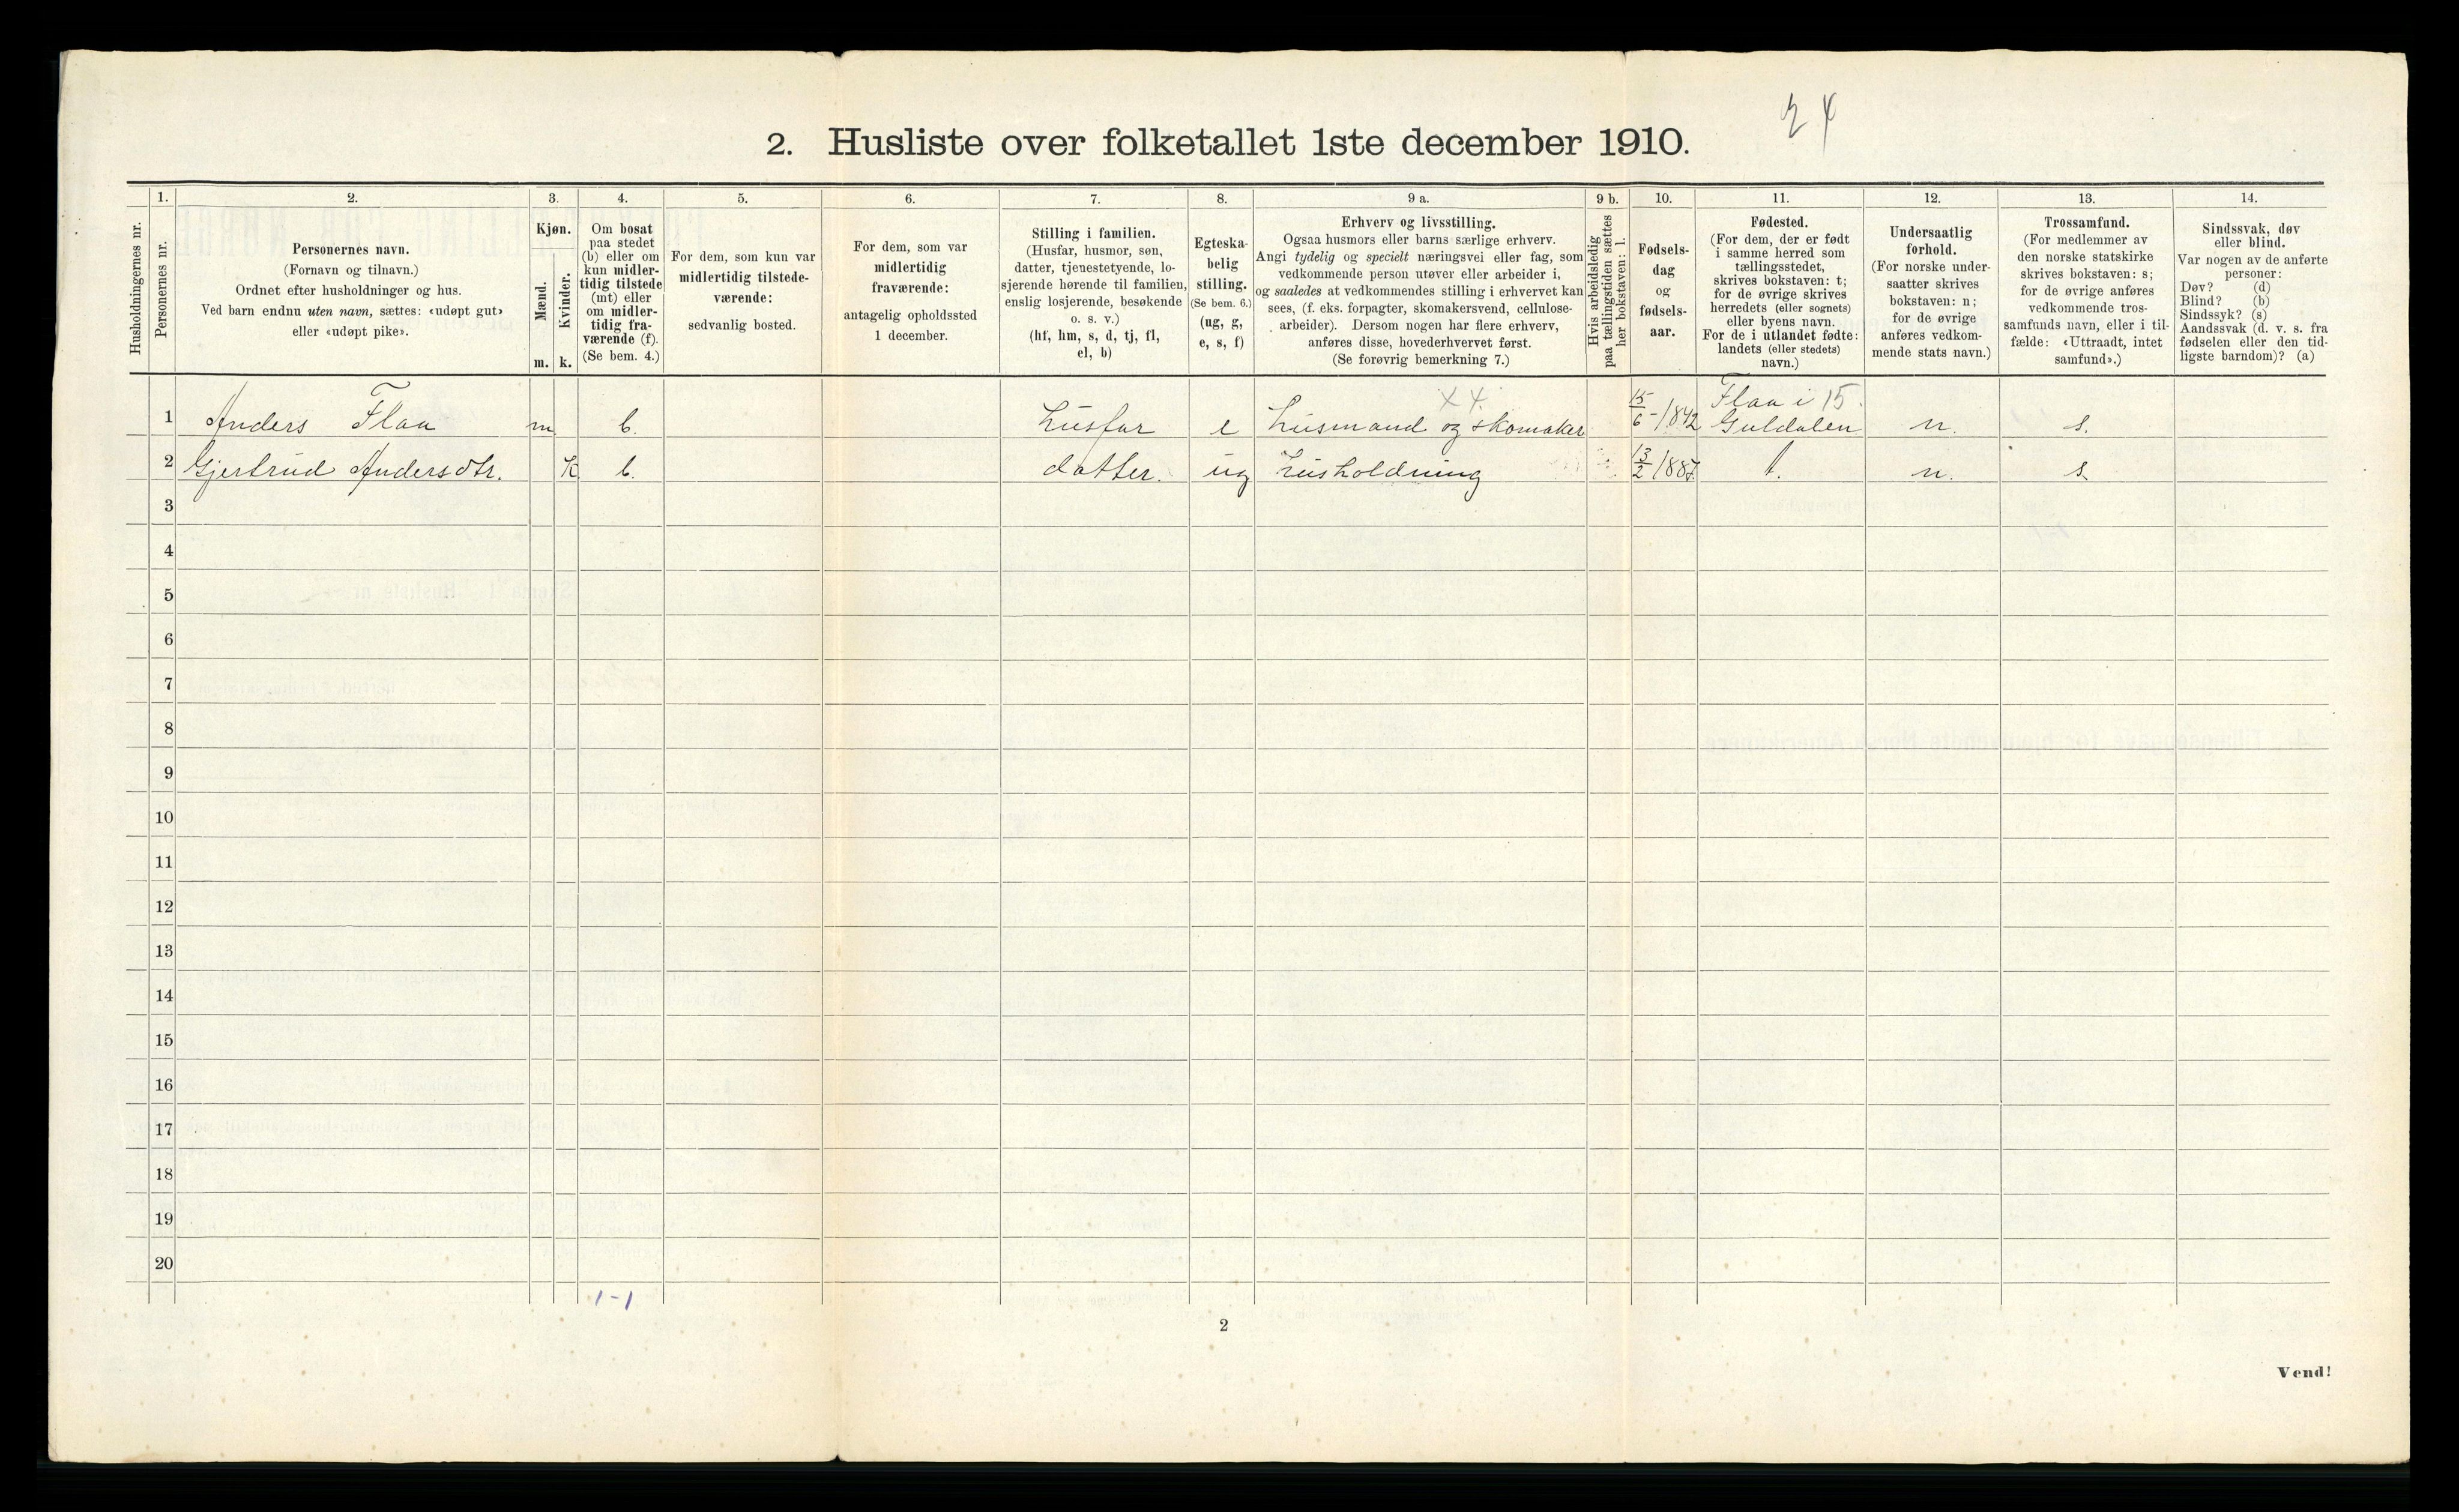 24
2. Husliste over folketallet 1ste december 1910.
Husholdningernes nr.
1.
Personernes nr.
2.
Personernes navn.
(Fornavn og tilnavn.)
Ordnet efter husholdninger og hus.
Ved barn endnu uten navn, sættes: «udøpt gut»
eller «udøpt pike».
3.
Kjøn.
Mænd.
m.
Kvinder.
k.
4.
Om bosat
paa stedet
(b) eller om
kun midler-
tidig tilstede
(mt) eller
om midler-
tidig fra-
værende (f).
(Se bem. 4.)
5.
For dem, som kun var
midlertidig tilstede-
værende:
sedvanlig bosted.
6.
For dem, som var
midlertidig
fraværende:
antagelig opholdssted
1 december.
7.
Stilling i familien.
(Husfar, husmor, søn,
datter, tjenestetyende, lo-
sjerende hørende til familien,
enslig losjerende, besøkende
o. s. v.)
(hf, hm, s, d, tj, fl,
el, b)
8.
Egteska-
belig
stilling.
(Se bem. 6.)
(ug, g,
e, s, f)
9 a.
Erhverv og livsstilling.
Ogsaa husmors eller barns særlige erhverv.
Angi tydelig og specielt næringsvei eller fag, som
vedkommende person utøver eller arbeider i,
og saaledes at vedkommendes stilling i erhvervet kan
sees, (f. eks. forpagter, skomakersvend, cellulose-
arbeider). Dersom nogen har flere erhverv,
anføres disse, hovederhvervet først.
(Se forøvrig bemerkning 7.)
9 b.
Hvis arbeidsledig
paa tællingstiden sættes
her bokstaven: l.
10.
Fødsels-
dag
og
fødsels-
aar.
11.
Fødested.
(For dem, der er født
i samme herred som
tællingsstedet,
skrives bokstaven: t;
for de øvrige skrives
herredets (eller sognets)
eller byens navn.
For de i utlandet fødte:
landets (eller stedets)
navn.)
12.
Undersaatlig
forhold.
(For norske under-
saatter skrives
bokstaven: n;
for de øvrige
anføres vedkom-
mende stats navn.)
13.
Trossamfund.
(For medlemmer av
den norske statskirke
skrives bokstaven: s;
for de øvrige anføres
vedkommende tros-
samfunds navn, eller i til-
fælde: «Uttraadt, intet
samfund».)
14.
Sindssvak, døv
eller blind.
Var nogen av de anførte
personer:
Døv? (d)
Blind? (b)
Sindssyk? (s)
Aandssvak (d. v. s. fra
fødselen eller den tid-
ligste barndom)? (a)
X 4. Flaa i 15.
1 Anders Flaa m b. husfar e husmand og skomaker 15/6-1842 Guldalen n. s.
2 Gjertrud Andersdtr. K b. datter. ug husholdning 13/2 1887 t. n. s.
3
4
5
6
7
8
9
10
11
12
13
14
15
16
17
18
19
20
1-1
2
Vend!